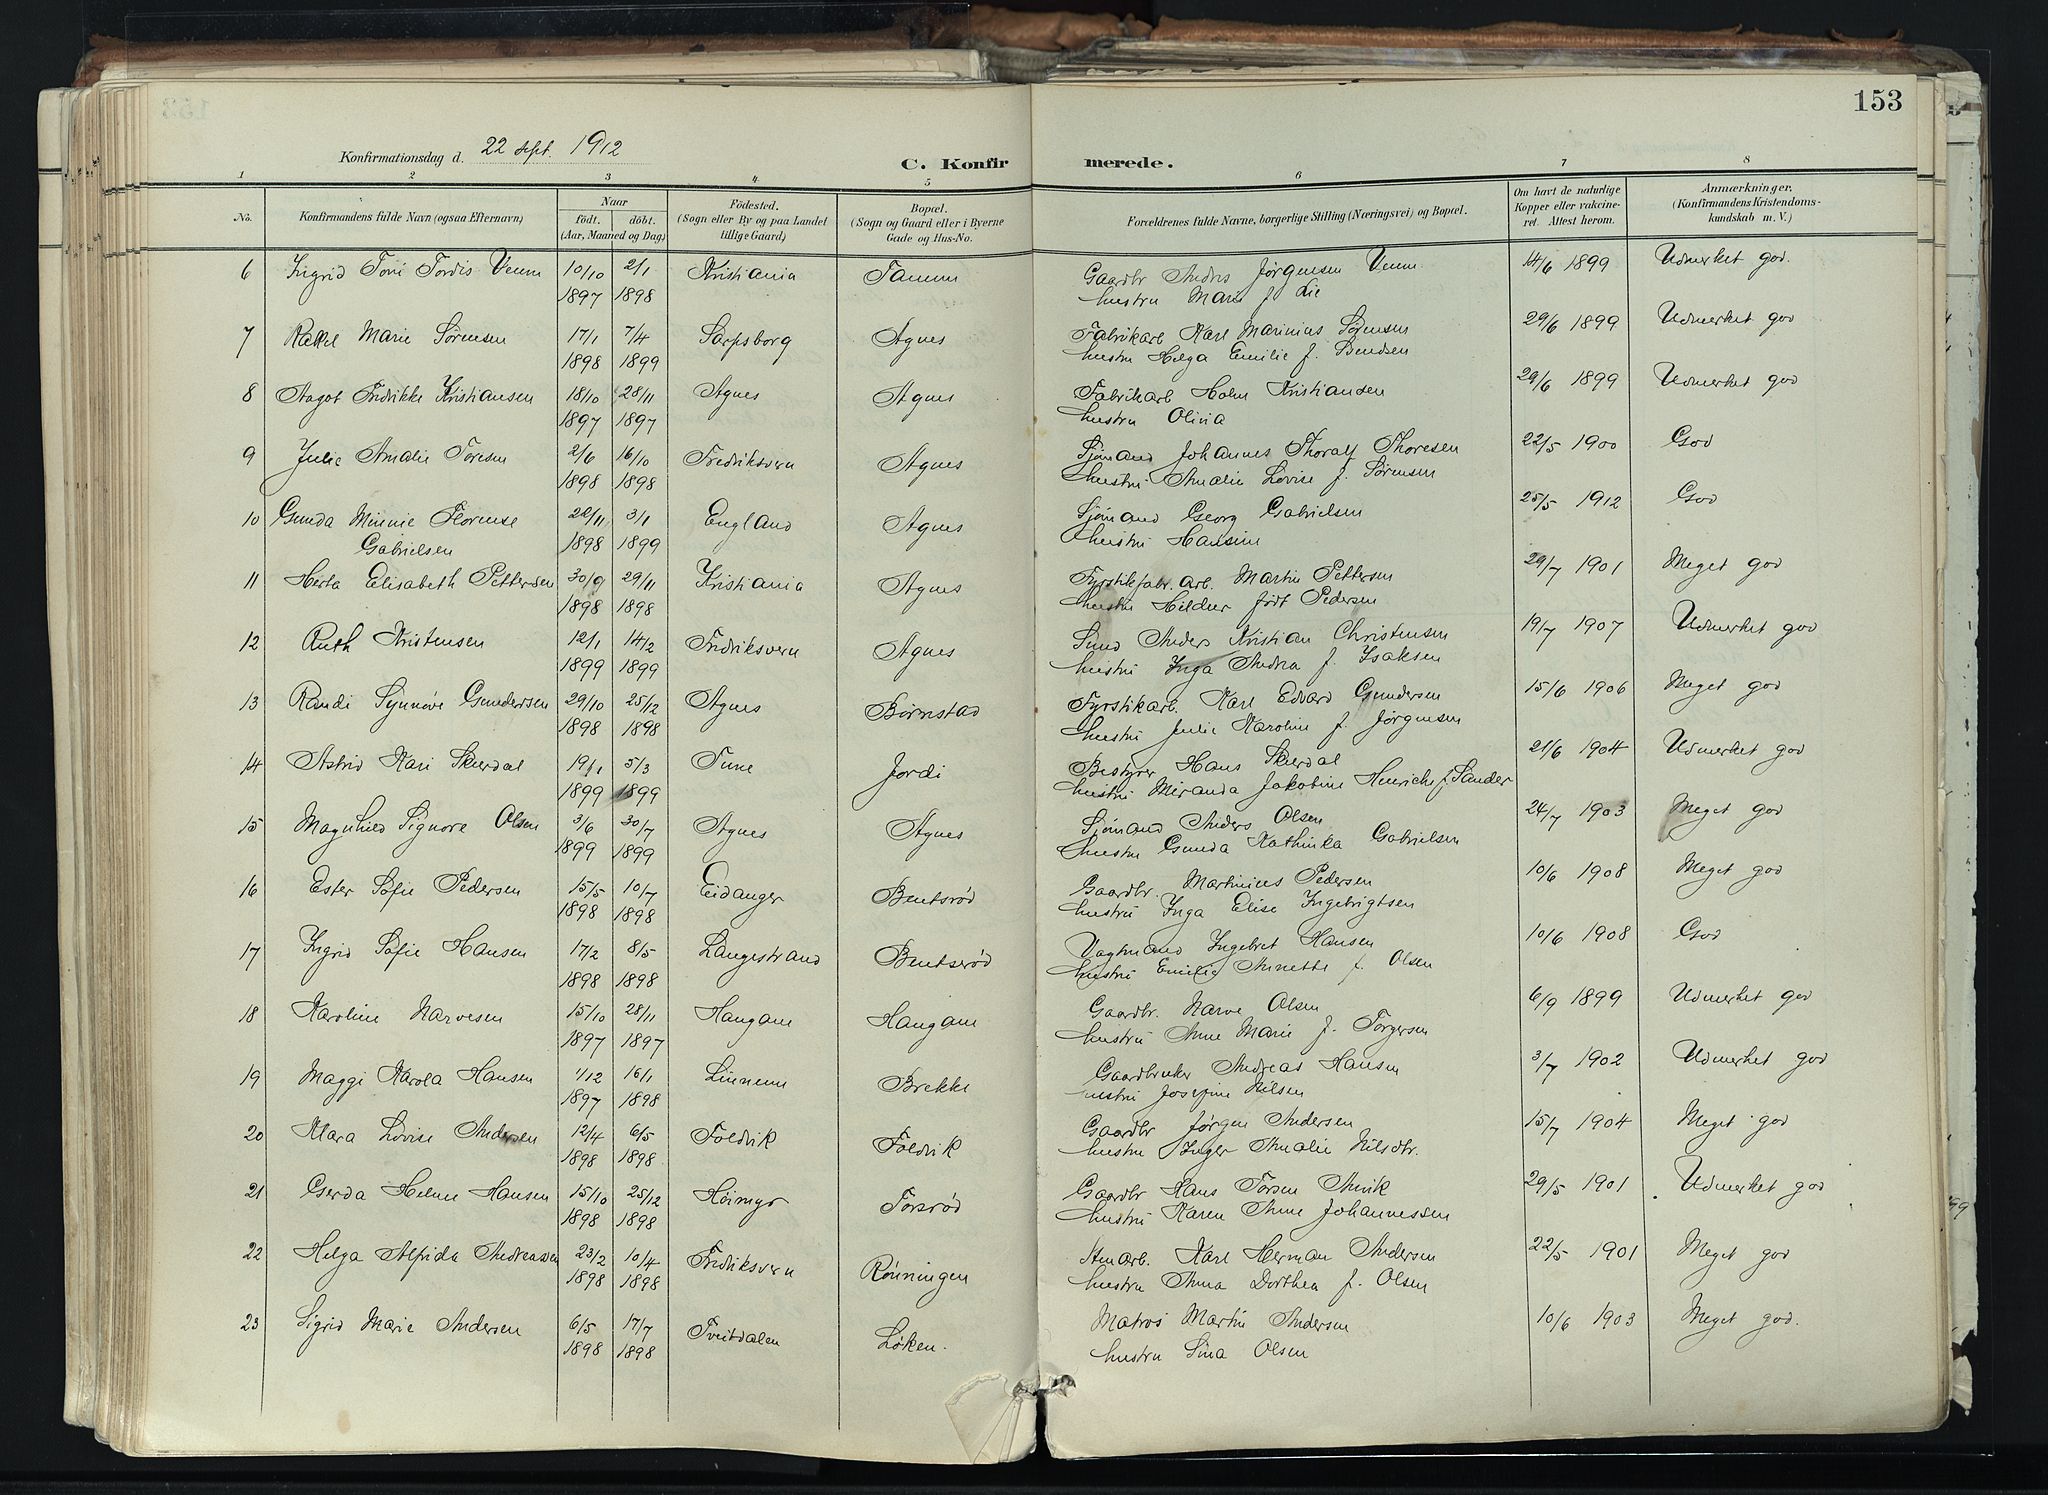 153
Konfirmationsdag d. 22 sept. 1912
C. Konfirmerede.
1 2 3 4 5 6 7 8
No. Konfirmandens fulde Navn (ogsaa Efternavn) Naar født. døbt. (Aar, Maaned og Dag) Fødested. (Sogn eller By og paa Landet tillige Gaard) Bopæl. (Sogn og Gaard eller i Byerne Gade og Hus-No. Forældrenes fulde Navne, borgerlige Stilling (Næringsvei) og Bopæl. Om havt de naturlige Kopper eller vakcineret. Attest herom. Anmærkninger. (Konfirmandens Kristendomskundskab m. V.)
6 Ingrid Toni Tordis Vemm 10/10 2/1 Kristiania Tanum Gaardbr Anders Jørgensen Vemm 14/6 1899 Udmerket god.
1897 1898 hustru Marie f. Lie
7 Rakel Marie Sørensen 17/1 7/4 Sarpsborg Agnes Fabrikarb Karl Marinius Sørensen 29/6 1899 Udmerket god
1898 1899 hustru Helga Emilie f. Bendsen
8 Aagot Fredrikke Kristiansen 18/10 28/11 Agnes Agnes Fabrikarb Holm Kristiansen 29/6 1899 Udmerket god
1897 1897 hustru Olivia
9 Julie Amalie Toresen 2/6 16/10 Fredriksvern Agnes Sjømand Johannes Thoralf Thoresen 22/5 1900 God
1898 1898 hustru Amalie Lovise f. Sørensen
10 Gunda Minnie Florense 22/11 3/1 England Agnes Sjømand Georg Gabrielsen 25/5 1912 God
Gabrielsen 1898 1899 hustru Hansine
11 Herta Elisabeth Pettersen 30/9 29/11 Kristiania Agnes Fyrstikfabr. arb. Martin Pettersen 29/7 1901 Meget god
1898 1898 hustru Hildur født Pedersen
12 Ruth Kristensen 12/1 14/2 Fredriksvern Agnes Anders Kristian Christensen 19/7 1907 Udmerket god
1899 1899 hustru Inga Andrea f. Isaksen
13 Randi Synnøve Gundersen 29/10 25/12 Agnes Børnstad Fyrstikarb. Karl Edvard Gundersen 15/6 1906 Meget god
1898 1898 hustru Julie Karoline f. Jørgensen
14 Astrid Kari Skierdal 19/1 5/3 Tune Jordi Bestyrer Hans Skierdal 21/6 1904 Udmerket god
1899 1899 hustru Miranda Jakobine Henrich f. Sander
15 Magnhild Signore Olsen 3/6 30/7 Agnes Agnes Sjømand Anders Olsen 24/7 1903 Meget god
1899 1899 hustru Gunda Kathinka Gabrielsen
16 Ester Sofie Pedersen 15/5 10/7 Eidanger Bentsrød Gaardbr. Martinius Pedersen 10/6 1908 Meget god
1898 1898 hustru Inga Elise Ingebrigtsen
17 Ingrid Sofie Hansen 17/2 8/5 Langestrand Bentserød Vagtmand Ingebret Hansen 10/6 1908 God
1898 1898 hustru Emilie Annette f. Olsen
18 Karoline Narvesen 15/10 28/11 Haugam Haugam Gaardbr. Narve Olsen 6/9 1899 Udmerket god
1897 1897 hustru Anne Marie f. Torgersen
19 Maggi Karola Hansen 1/12 16/1 Linnem Brekke Gaardbruker Andreas Hansen 3/7 1902 Udmerket god
1897 1898 hustru Josefine Nilsen
20 Klara Lovise Andersen 12/4 6/5 Foldvik Foldvik Gaardbr Jørgen Andersen 15/7 1904 Meget god
1898 1898 hustru Inger Amalie Nilsdtr.
21 Gerda Helene Hansen 15/10 25/12 Høimyr Torsrød Gaardbr Hans Torsen Anvik 29/5 1901 Udmerket god
1898 1898 hustru Karen Anne Johannessen
22 Helga Alfrida Andreassen 23/2 10/4 Fredriksvern Rønningen Stenarb. Karl Herman Andersen 22/5 1901 Meget god
1898 1898 hustru Anna Dorthea f. Olsen
23 Sigrid Marie Andersen 6/5 17/7 Tveitdalen Løken. Matros Martin Andersen 10/6 1903 Meget god.
1898 1898 hustru Lina Olsen